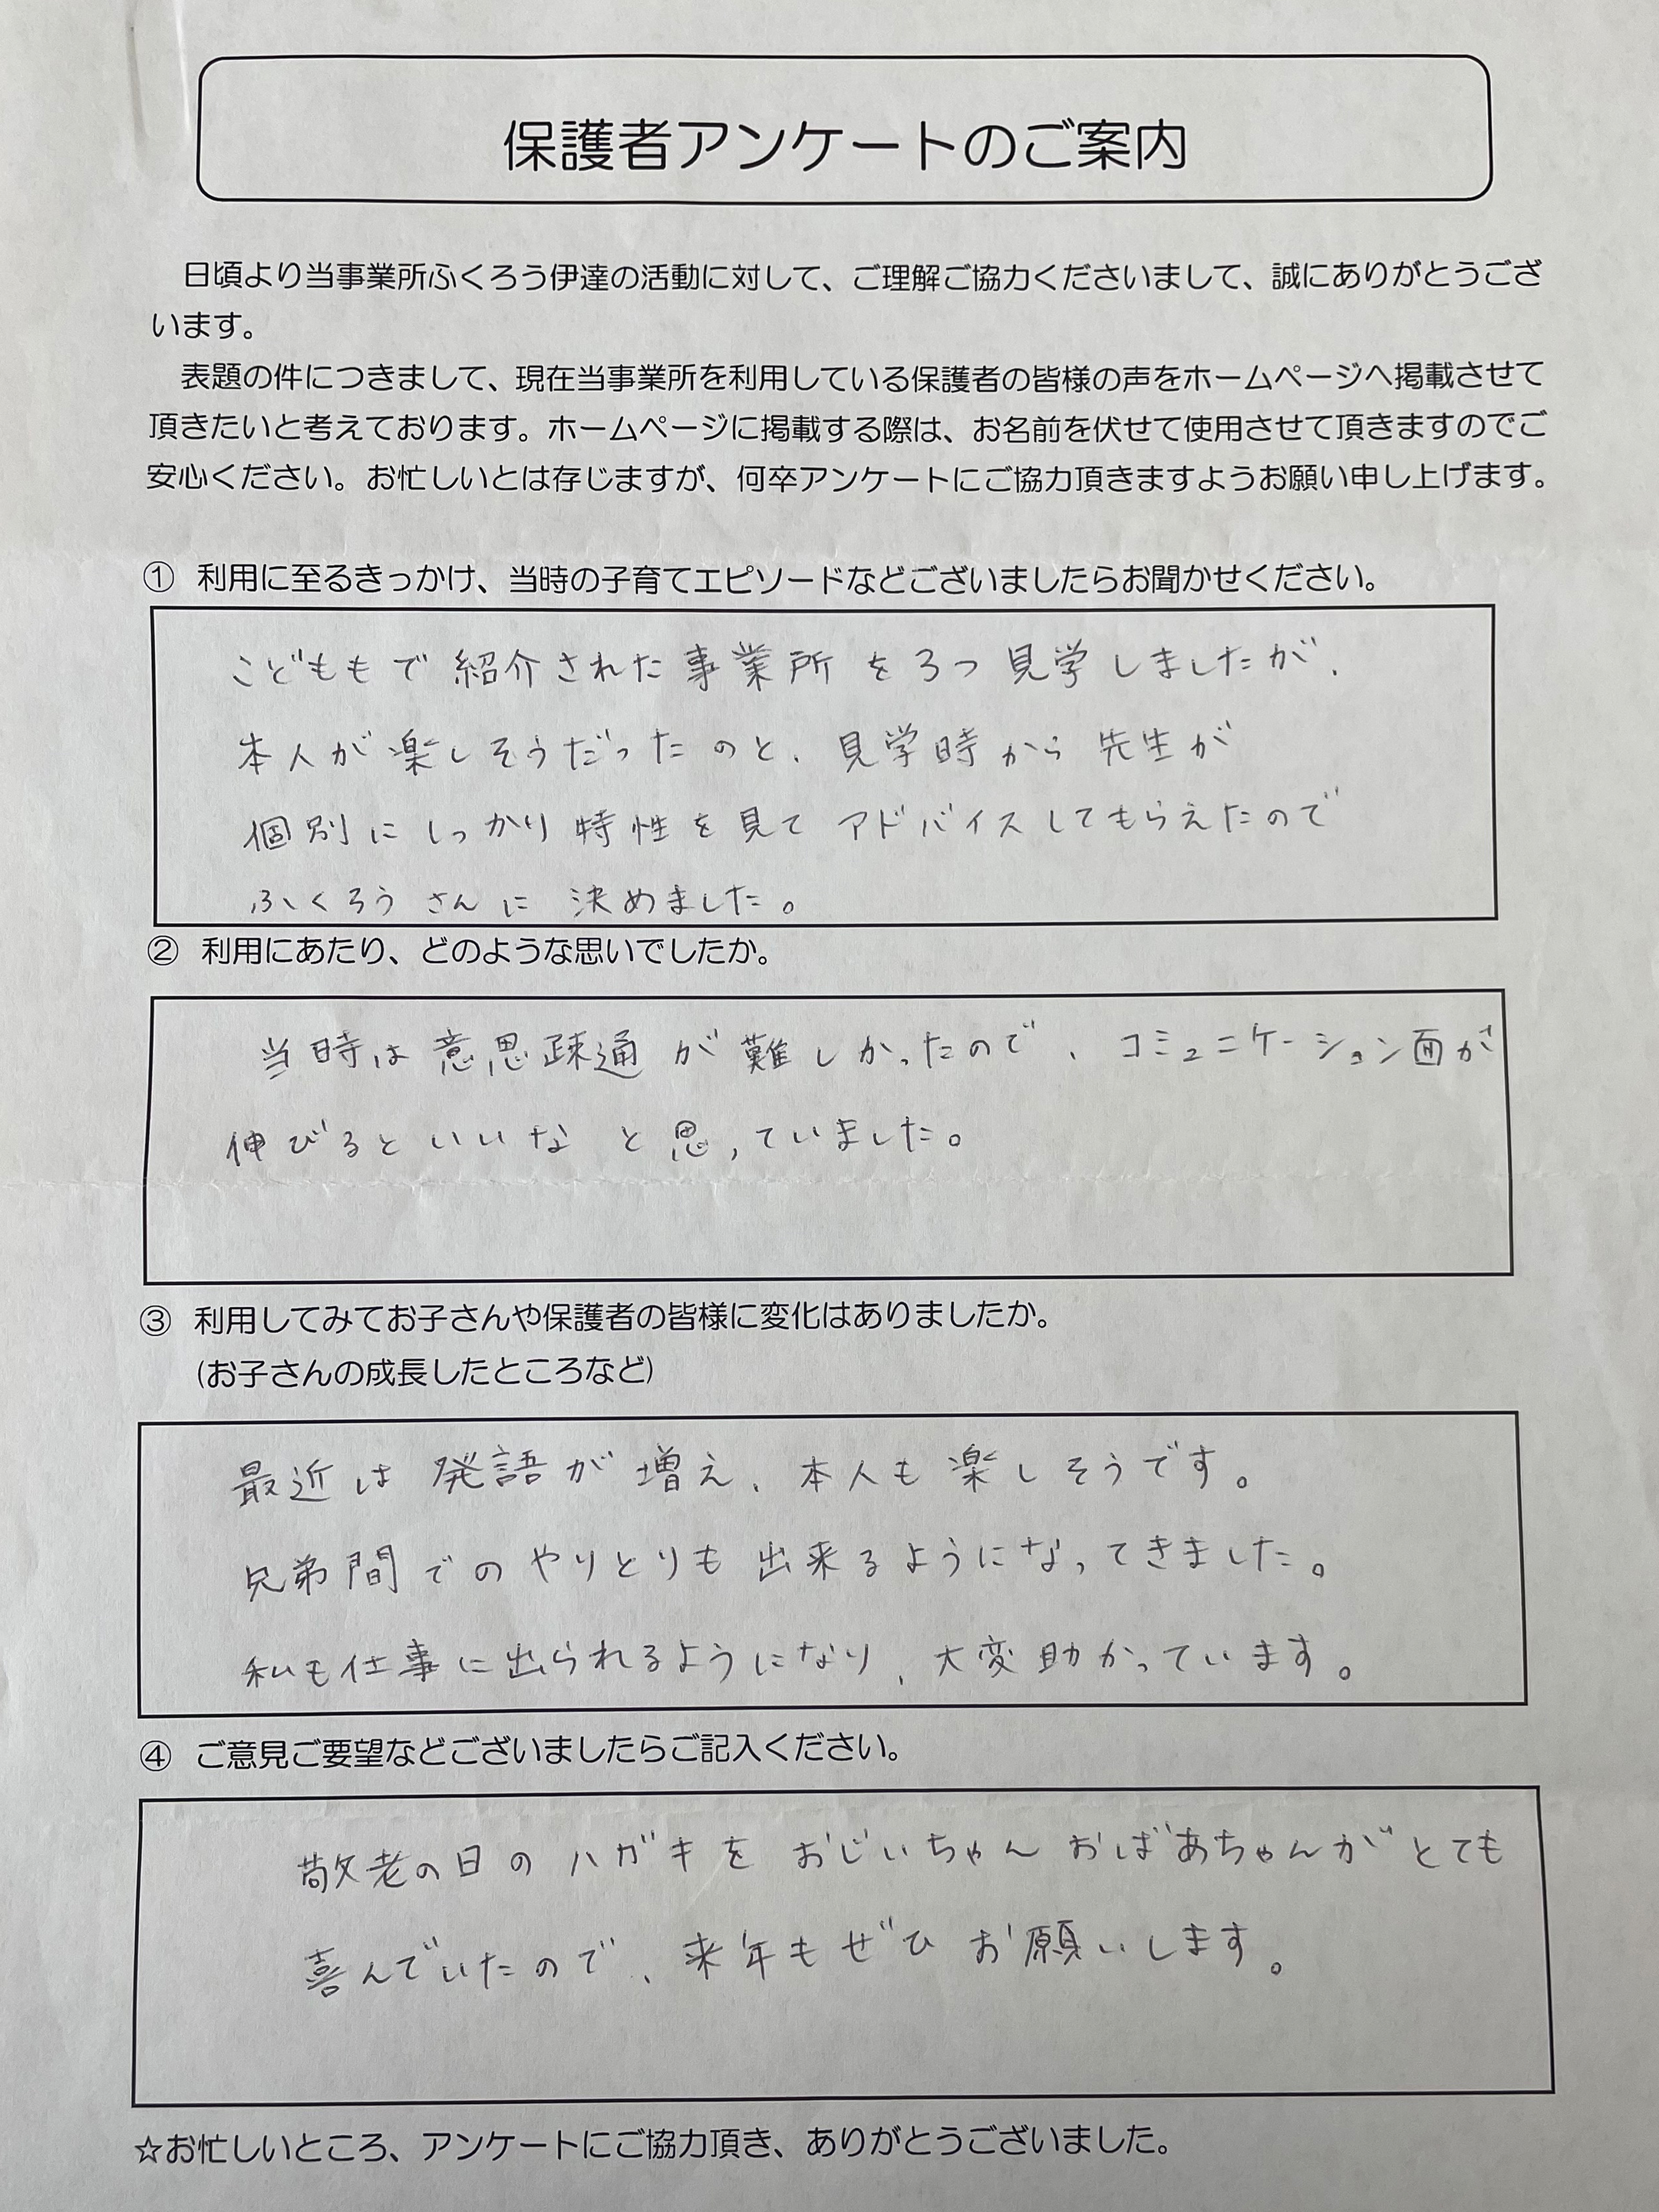 保護者アンケートのご案内
日頃より当事業所ふくろう伊達の活動に対して、ご理解ご協力くださいまして、誠にありがとうござ
います。
表題の件につきまして、現在当事業所を利用している保護者の皆様の声をホームページへ掲載させて
頂きたいと考えております。ホームページに掲載する際は、お名前を伏せて使用させて頂きますのでご
安心ください。お忙しいとは存じますが、何卒アンケートにご協力頂きますようお願い申し上げます。
① 利用に至るきっかけ、当時の子育てエピソードなどございましたらお聞かせください。
こどももで紹介された事業所を3つ見学しましたが、
本人が楽しそうだったのと、見学時から先生が
個別にしっかり特性を見てアドバイスしてもらえたので
ふくろうさんに決めました。
② 利用にあたり、どのような思いでしたか。
当時は意思疎通が難しかったので、コミュニケーション面が
伸びるといいなと思っていました。
③ 利用してみてお子さんや保護者の皆様に変化はありましたか。
(お子さんの成長したところなど)
最近は発語が増え、本人も楽しそうです。
兄弟間でのやりとりも出来るようになってきました。
私も仕事に出られるようになり、大変助かっています。
④ ご意見ご要望などございましたらご記入ください。
敬老の日のハガキをおじいちゃんおばあちゃんがとても
喜んでいたので、来年もぜひお願いします。
☆お忙しいところ、アンケートにご協力頂き、ありがとうございました。